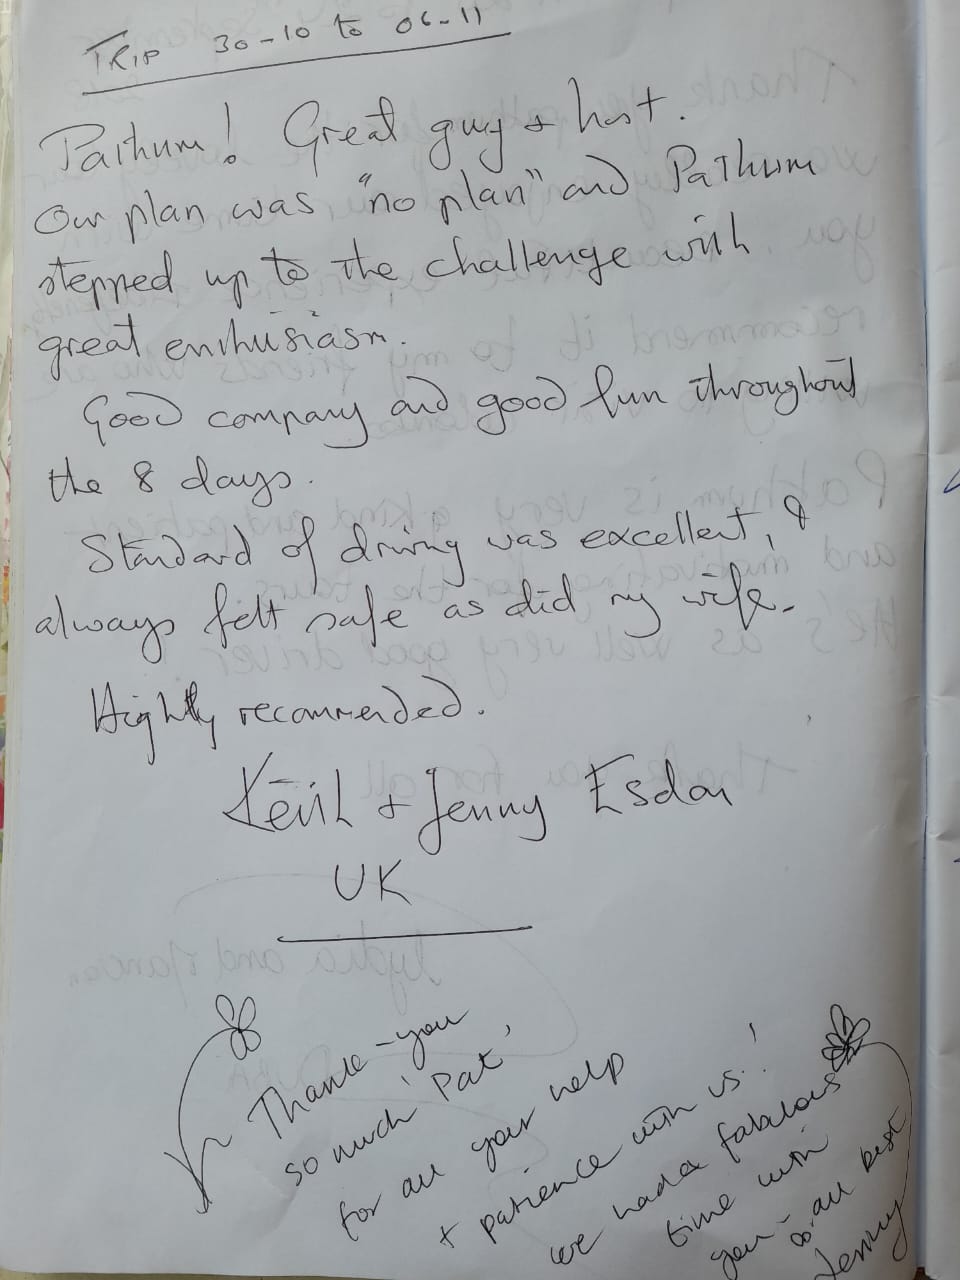 TRIP 30-10 to 06-11
Pathum! Great guy + host.
Our plan was "no plan" and Pathum
stepped up to the challenge with
great enthusiasm.
Good company and good fun throughout
the 8 days.
Standard of driving was excellent, I
always felt safe as did my wife.
Highly recommended.
Keith + Jenny Esdon
UK
Thank-you
so much 'Pat'
for all your help
+ patience with us!
we had a fabulous
time with
you - all best
Jenny